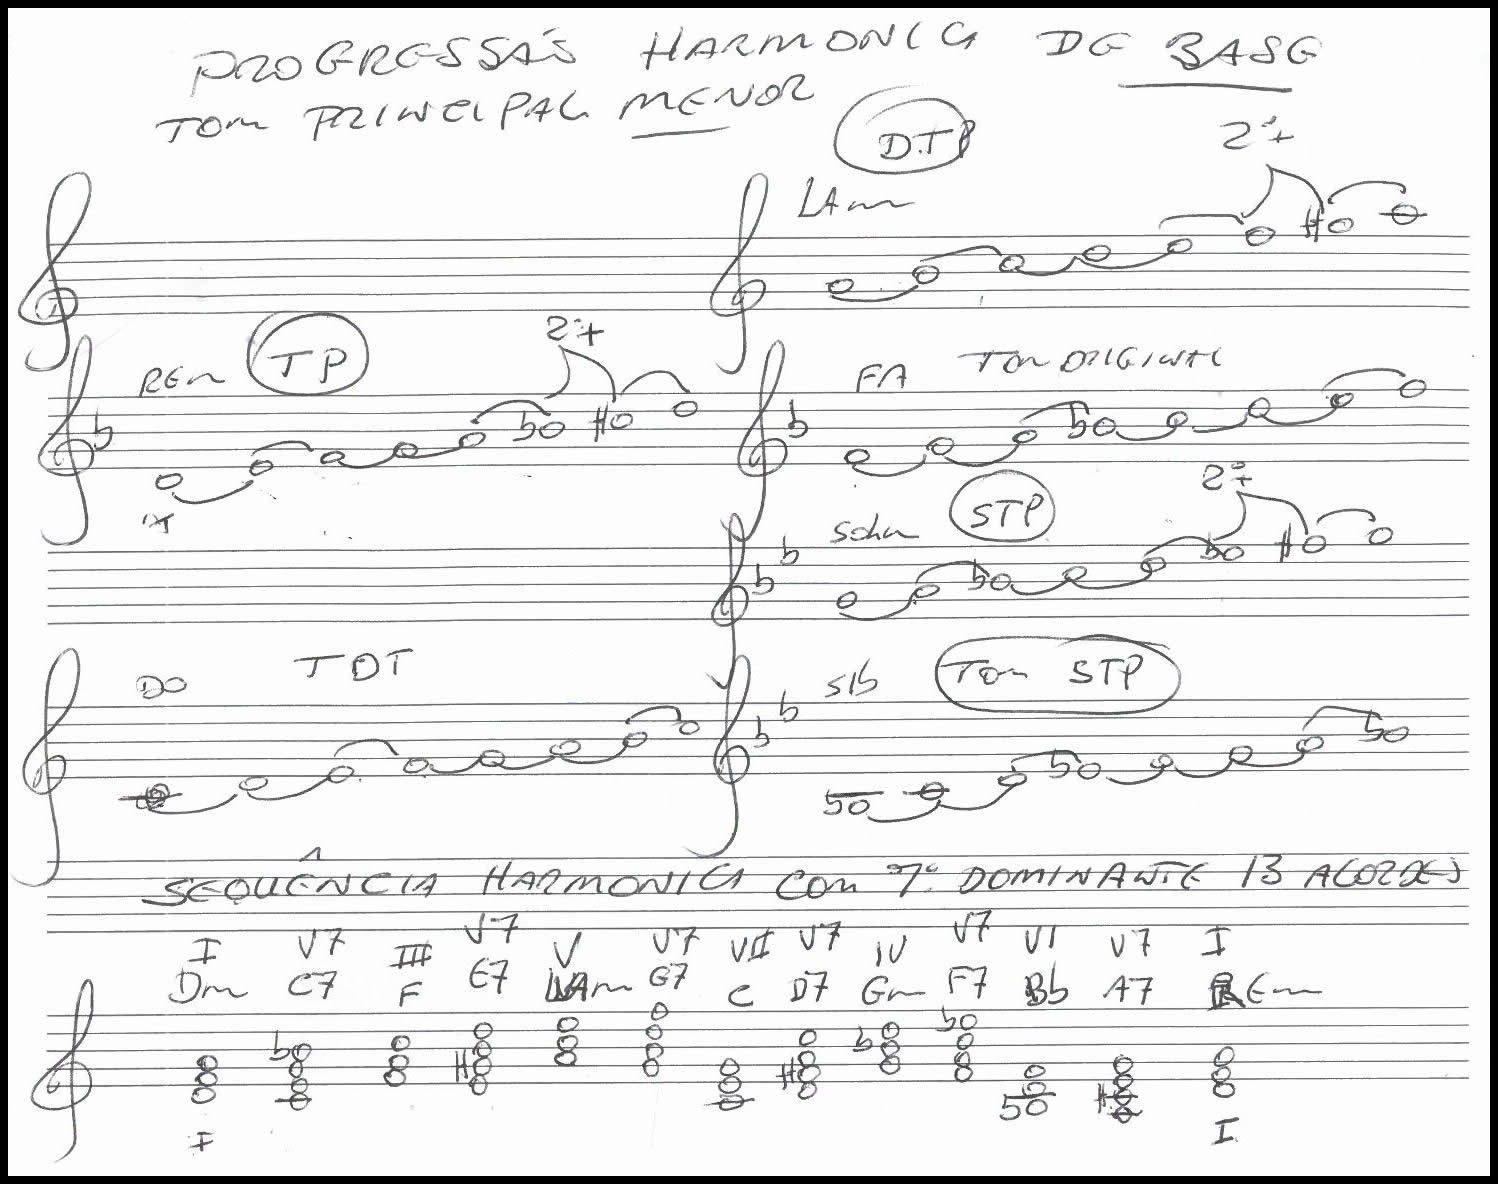 PROGRESSÃO HARMONICA DE BASE
TOM PRINCIPAL MENOR
DTP
LAm
2º+
REm TP
2º+
FA TOM ORIGINAL
SOLm STP
2º+
DO TDT
SIb Tom STP
SEQUÊNCIA HARMONICA COM 7º DOMINANTE 13 ACORDES
I V7 III V7 V V7 VII V7 IV V7 VI V7 I
Dm C7 F E7 LAm G7 C D7 Gm F7 Bb A7 REm
I I